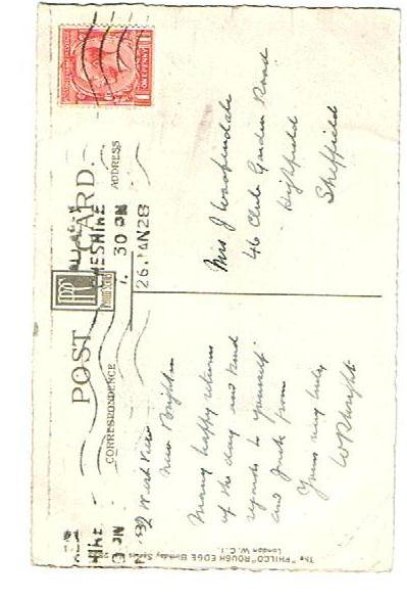 POST CARD.
CORRESPONDENCE
ADDRESS
ONE PENNY
WALLASEY
CHESHIRE
7. 30 PM
26 JAN 28
32 West View
New Brighton
Many happy returns
of the day and kind
regards to yourself
and Jack from
Yours very truly
W R Wright
Mrs J Wasp
46 Club Garden Road
Highfield
Sheffield
The "PHILCO" ROUGH EDGE Birthday Series
London W.C. 1.